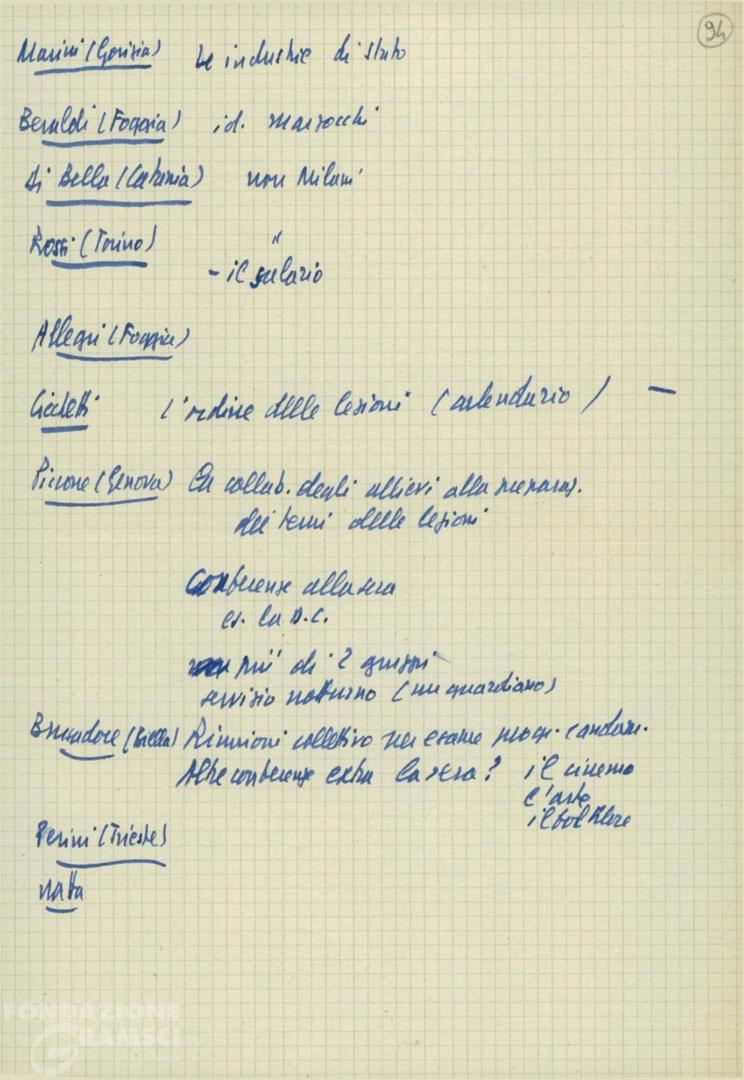 94
Marini (Gorizia) Le industrie di stato
Beraldi (Foggia) id. marzocchi
Di Bella (Catania) non Milani
Rossi (Torino) "
- il salario
Allegri (Foggia)
L'ordine delle lezioni (calendario) —
Piccone (Genova) La collab. degli allievi alla preparaz.
dei temi delle lezioni
Conferenze alla sera
es. la D.C.
più di 2 gruppi
servizio notturno (un guardiano)
(Biella) Riunioni collettivo per esame progr.
Altre conferenze extra la sera? il cinema
l'arte
il folklore
Perini (Trieste)
Natta
FONDAZIONE
GRAMSCI